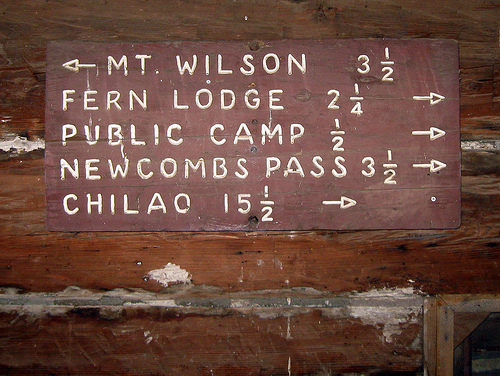 ← MT. WILSON 3 1/2
FERN LODGE 2 1/4 →
PUBLIC CAMP 1/2 →
NEWCOMBS PASS 3 1/2 →
CHILAO 15 1/2 →